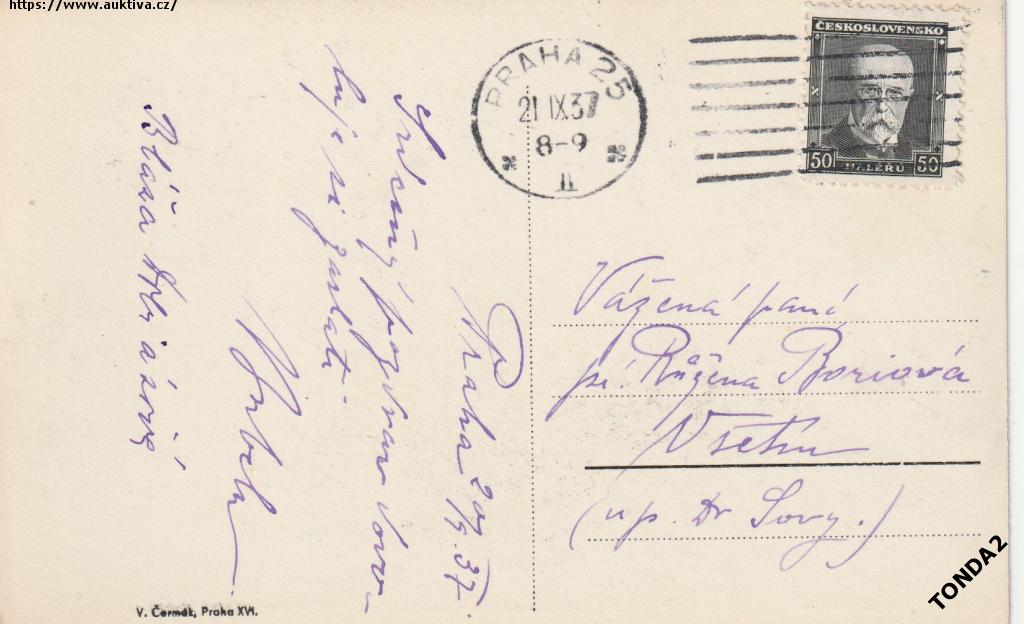 https://www.auktiva.cz/
PRAHA 25
21 IX 37
8-9
II
ČESKOSLOVENSKO
50 HALÉŘŮ 50
Praha 20/9. 37.
Srdečný pozdrav dovo-
luje si zaslati
Vážená paní
pí. Růžena Boriová
Vsetín
(u p. Dr Sovy.)
V. Čermák, Praha XVI.
TONDA2